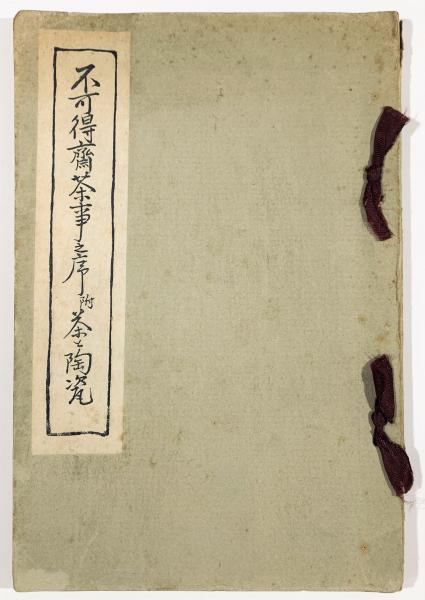 不可得齋茶事之序 附 茶と陶瓷